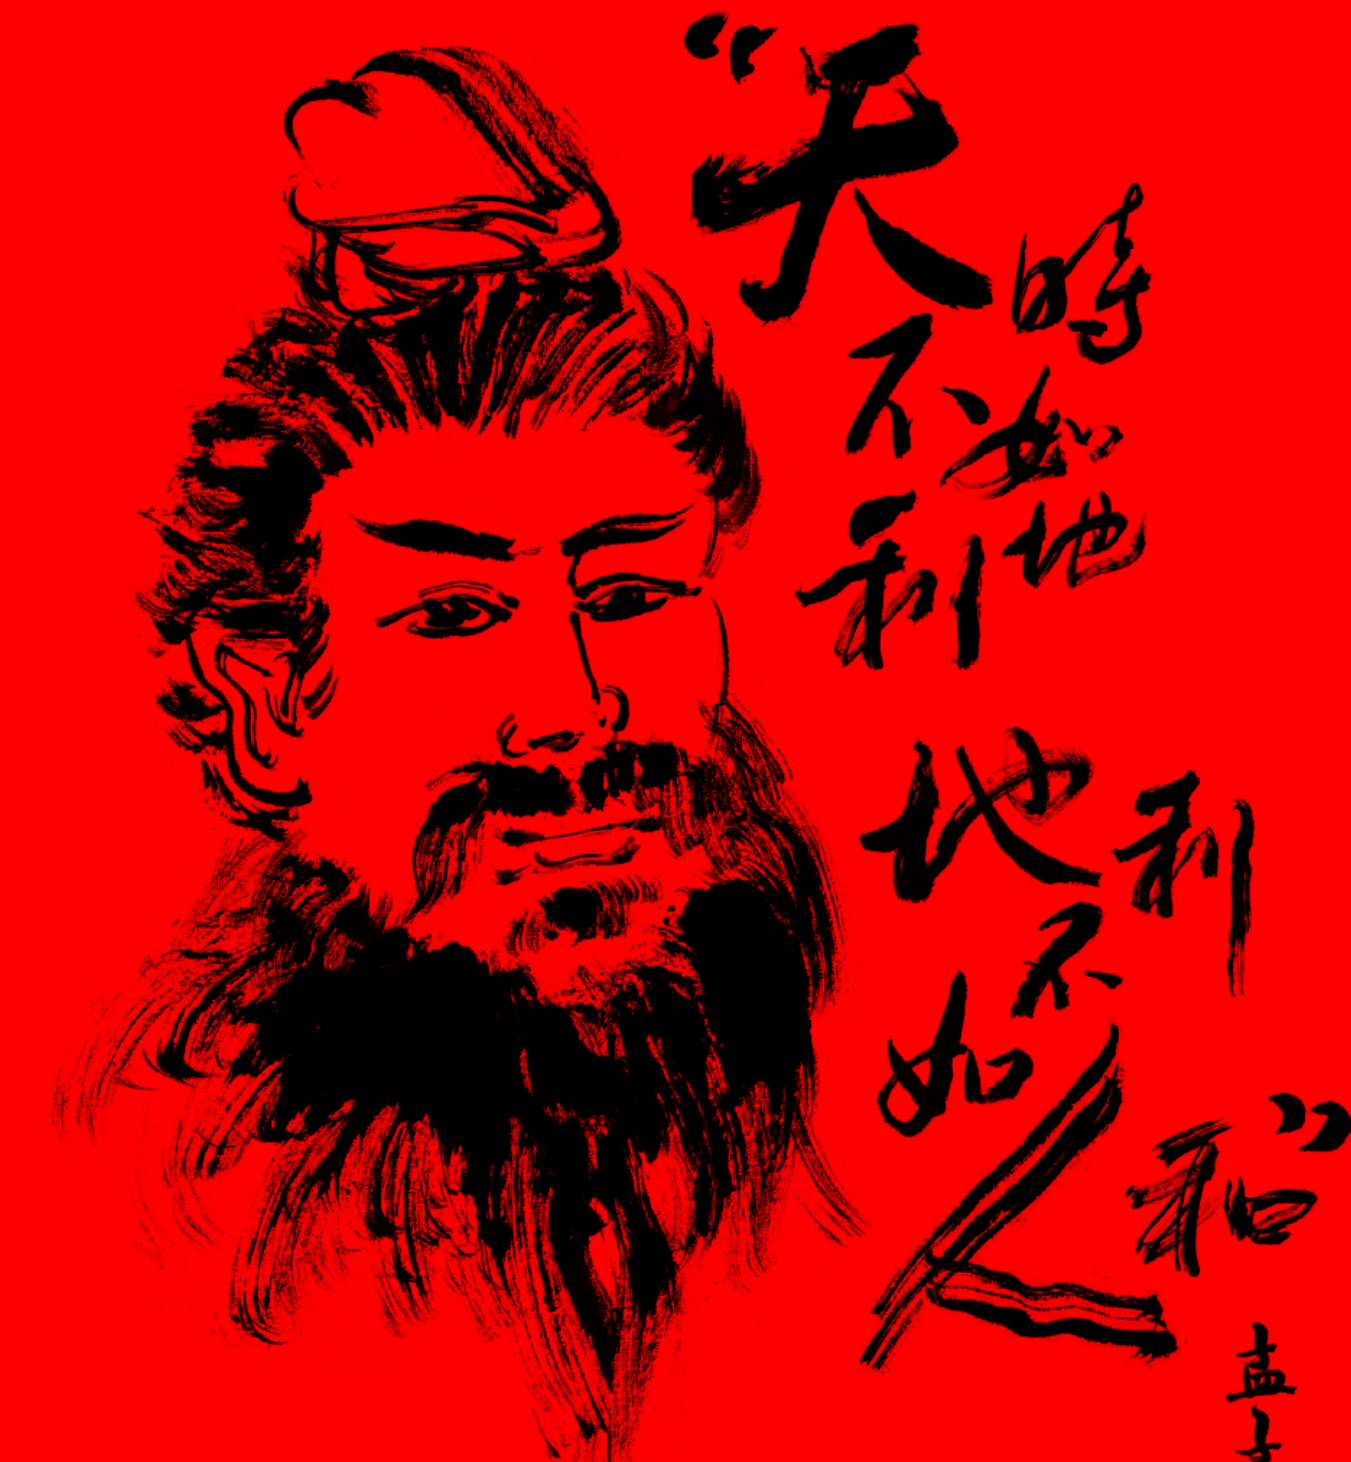 “天時
不如地
利
地利
不
如
人和”
孟子